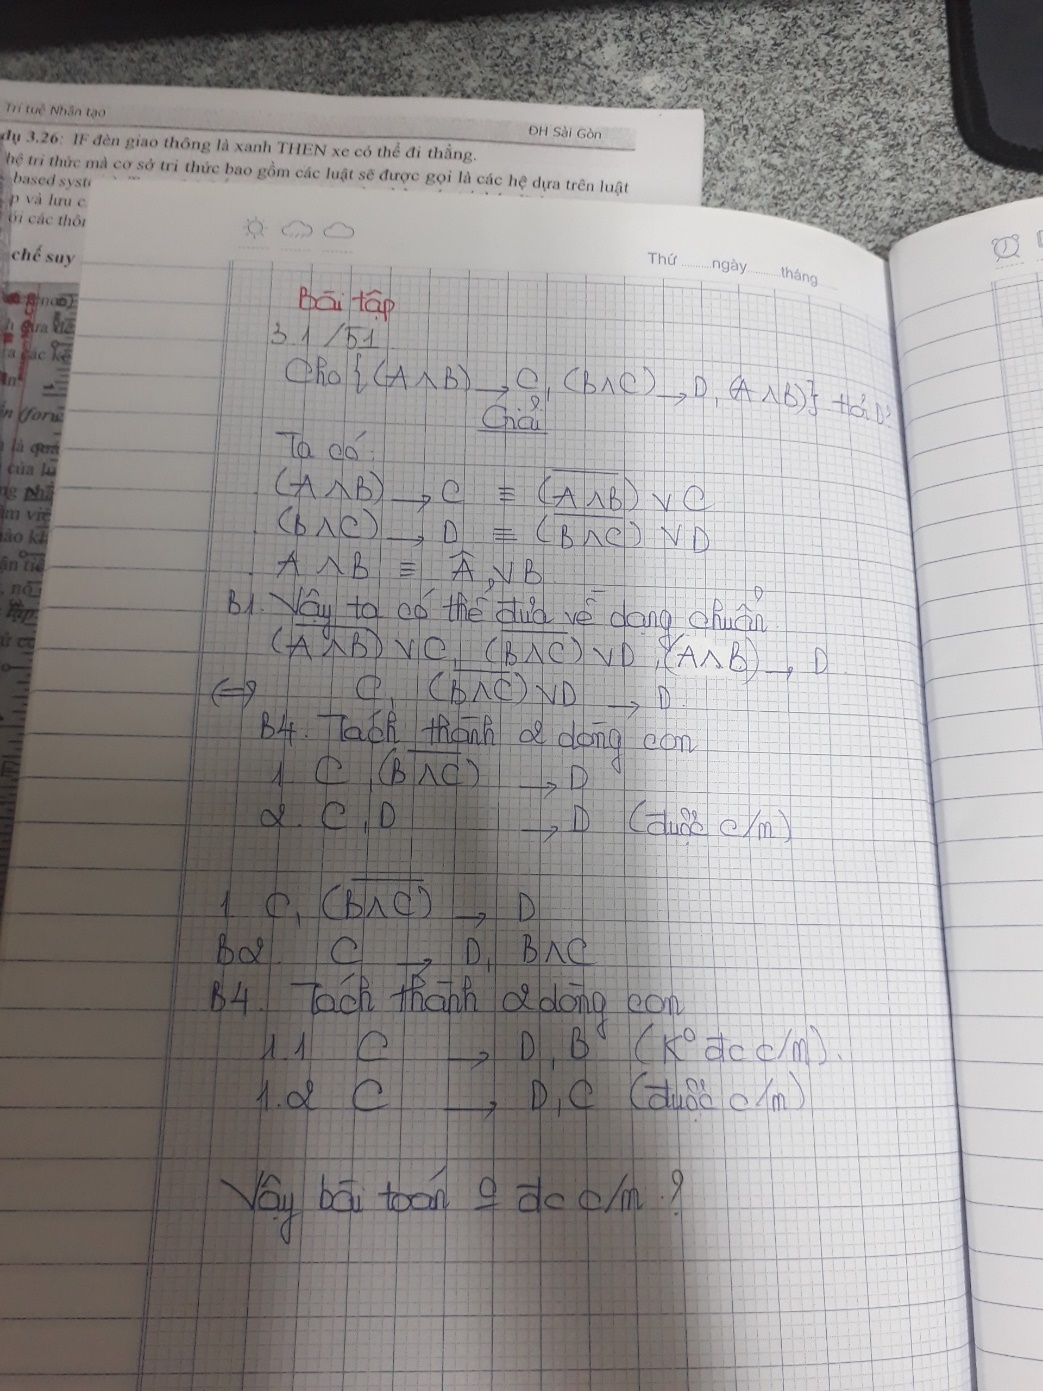 Trí tuệ Nhân tạo
ĐH Sài Gòn
dụ 3.26: IF đèn giao thông là xanh THEN xe có thể đi thẳng.
hệ tri thức mà cơ sở tri thức bao gồm các luật sẽ được gọi là các hệ dựa trên luật
based syst
p và lưu c
ới các thôn
chế suy
Thứ ........ngày........tháng
Bài tập
3.1/51
Cho {(A∧B) → C, (B∧C) → D, (A∧B)} hỏi D?
Giải
Ta có:
(A∧B) → C ≡ (\overline{A∧B}) ∨ C
(B∧C) → D ≡ (\overline{B∧C}) ∨ D
B1. Vậy ta có thể đưa về dạng chuẩn
(\overline{A∧B}) ∨ C, (\overline{B∧C}) ∨ D, (A∧B) → D
⇔ C, (\overline{B∧C}) ∨ D → D.
B4. Tách thành 2 dòng con
1. C, (\overline{B∧C}) → D
2. C, D → D (được c/m)
1. C, (\overline{B∧C}) → D
B2. C → D, B∧C
B4. Tách thành 2 dòng con
1.1 C → D, B (K° đc c/m).
1.2 C → D, C (được c/m)
Vậy bài toán đc c/m ?